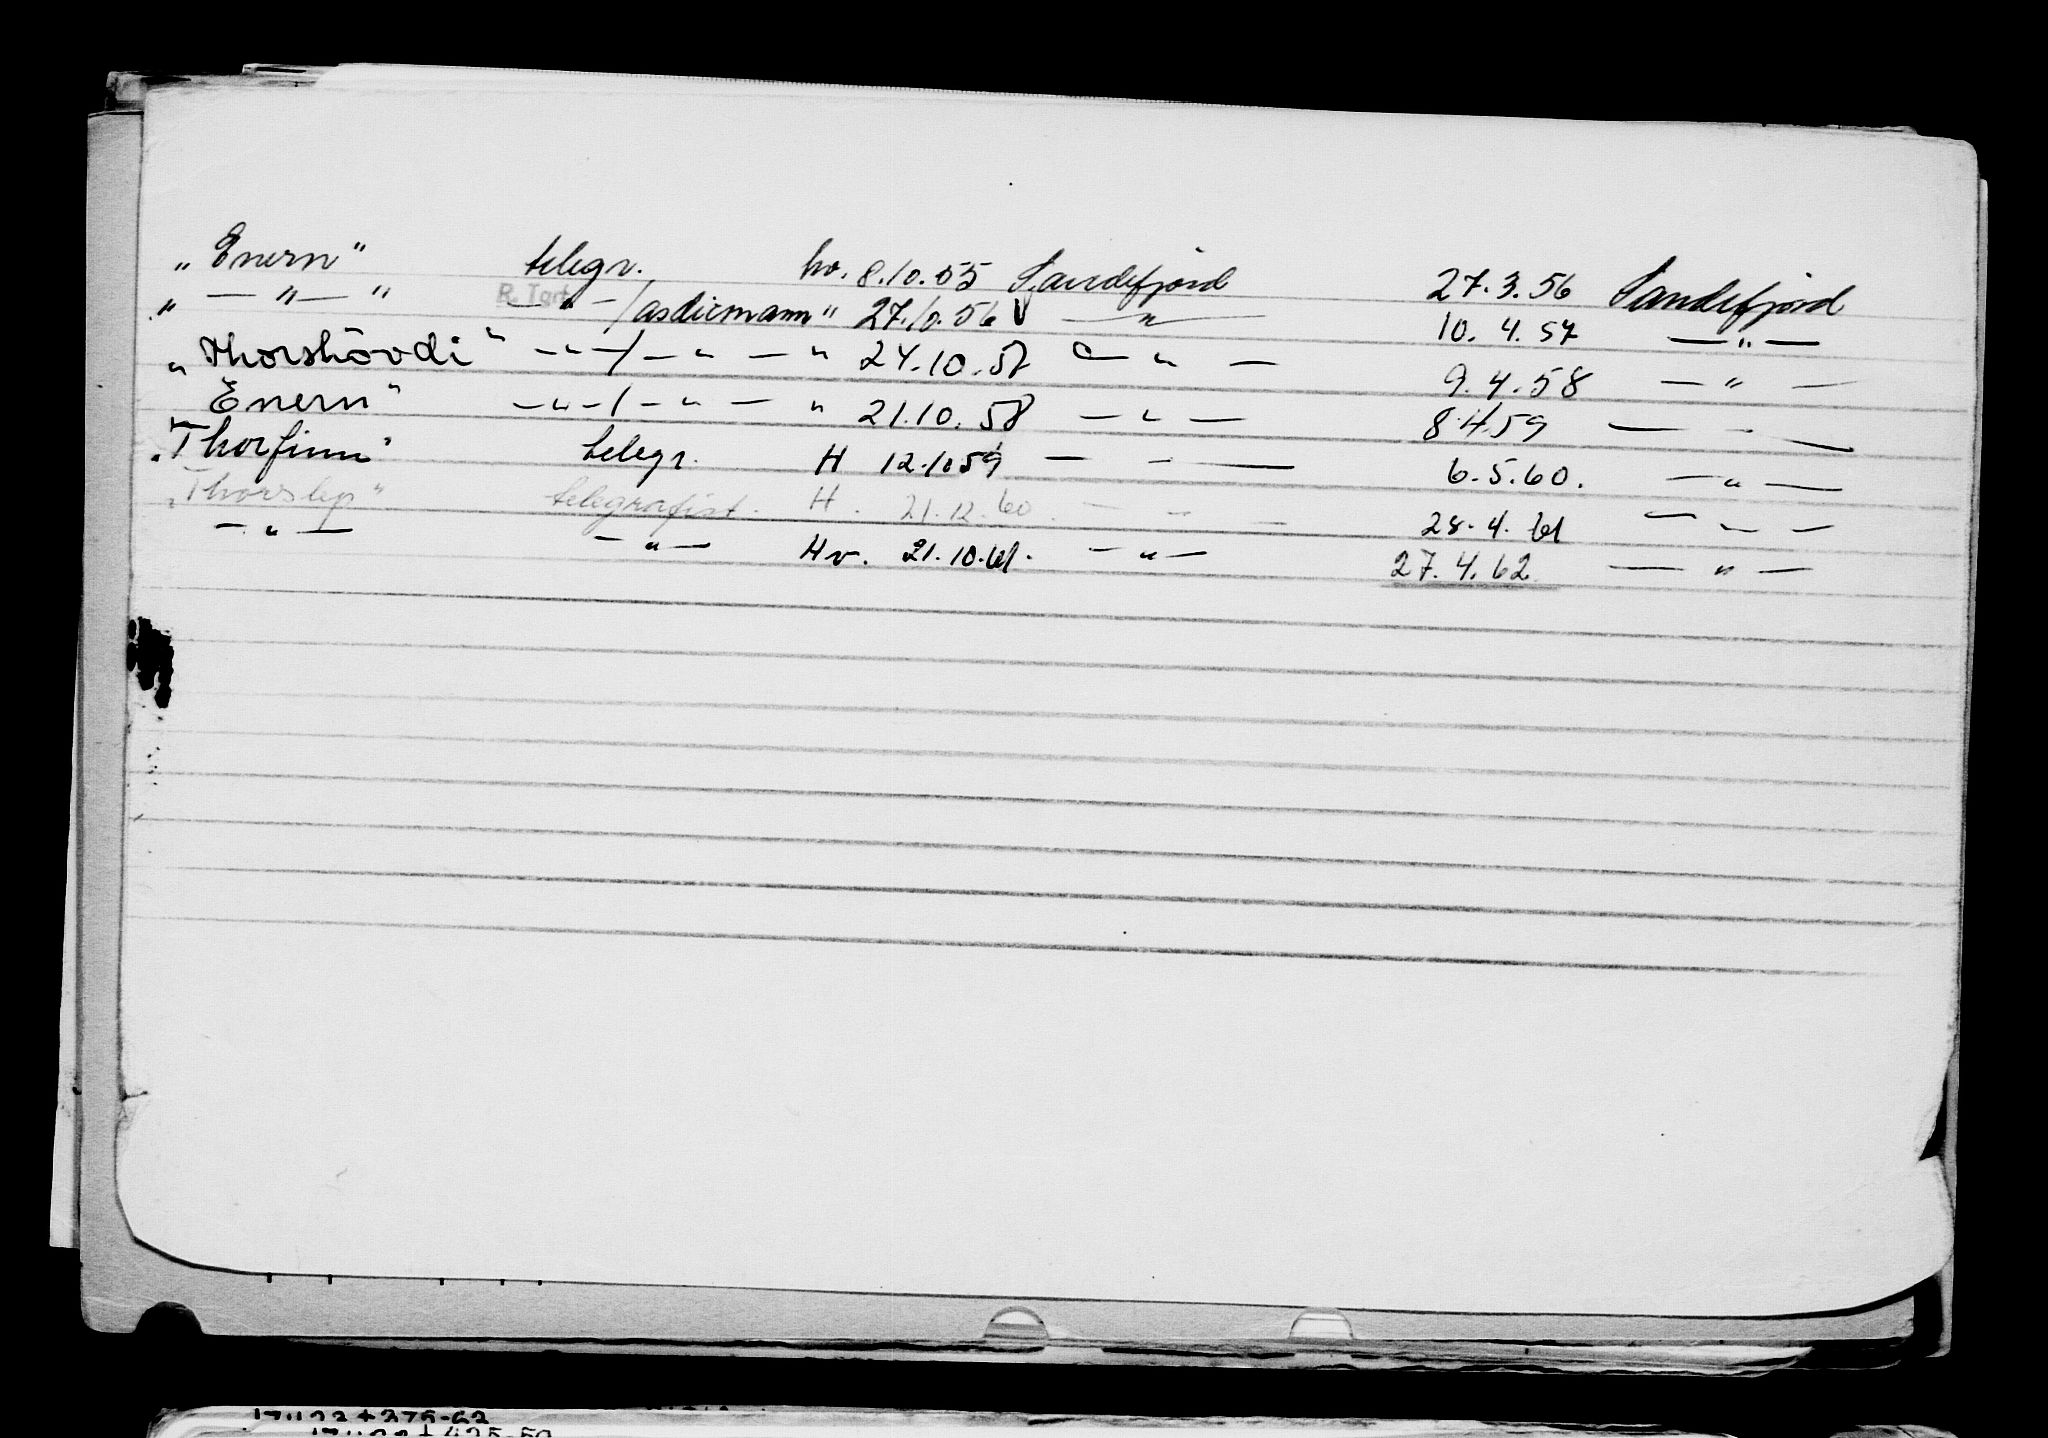 „Enern" telegr. hv. 8.10.55 Sandefjord 27.3.56 Sandefjord
" — " — " — " — / asdicmann " 27.10.56 — " — 10.4.57 — " —
„Thorshövdi" — " — / — " — " 24.10.57 — " — 9.4.58 — " —
Enern" — " — / — " — " 21.10.58 — " — 8.4.59 — " —
„Thorfinn" telegr. H 12.10.59 — " — 6.5.60. — " —
„Thorslep" telegrafist. H. 21.12.60. — " — 28.4.61 — " —
— " — — " — Hv. 21.10.61. — " — 27.4.62 — " —